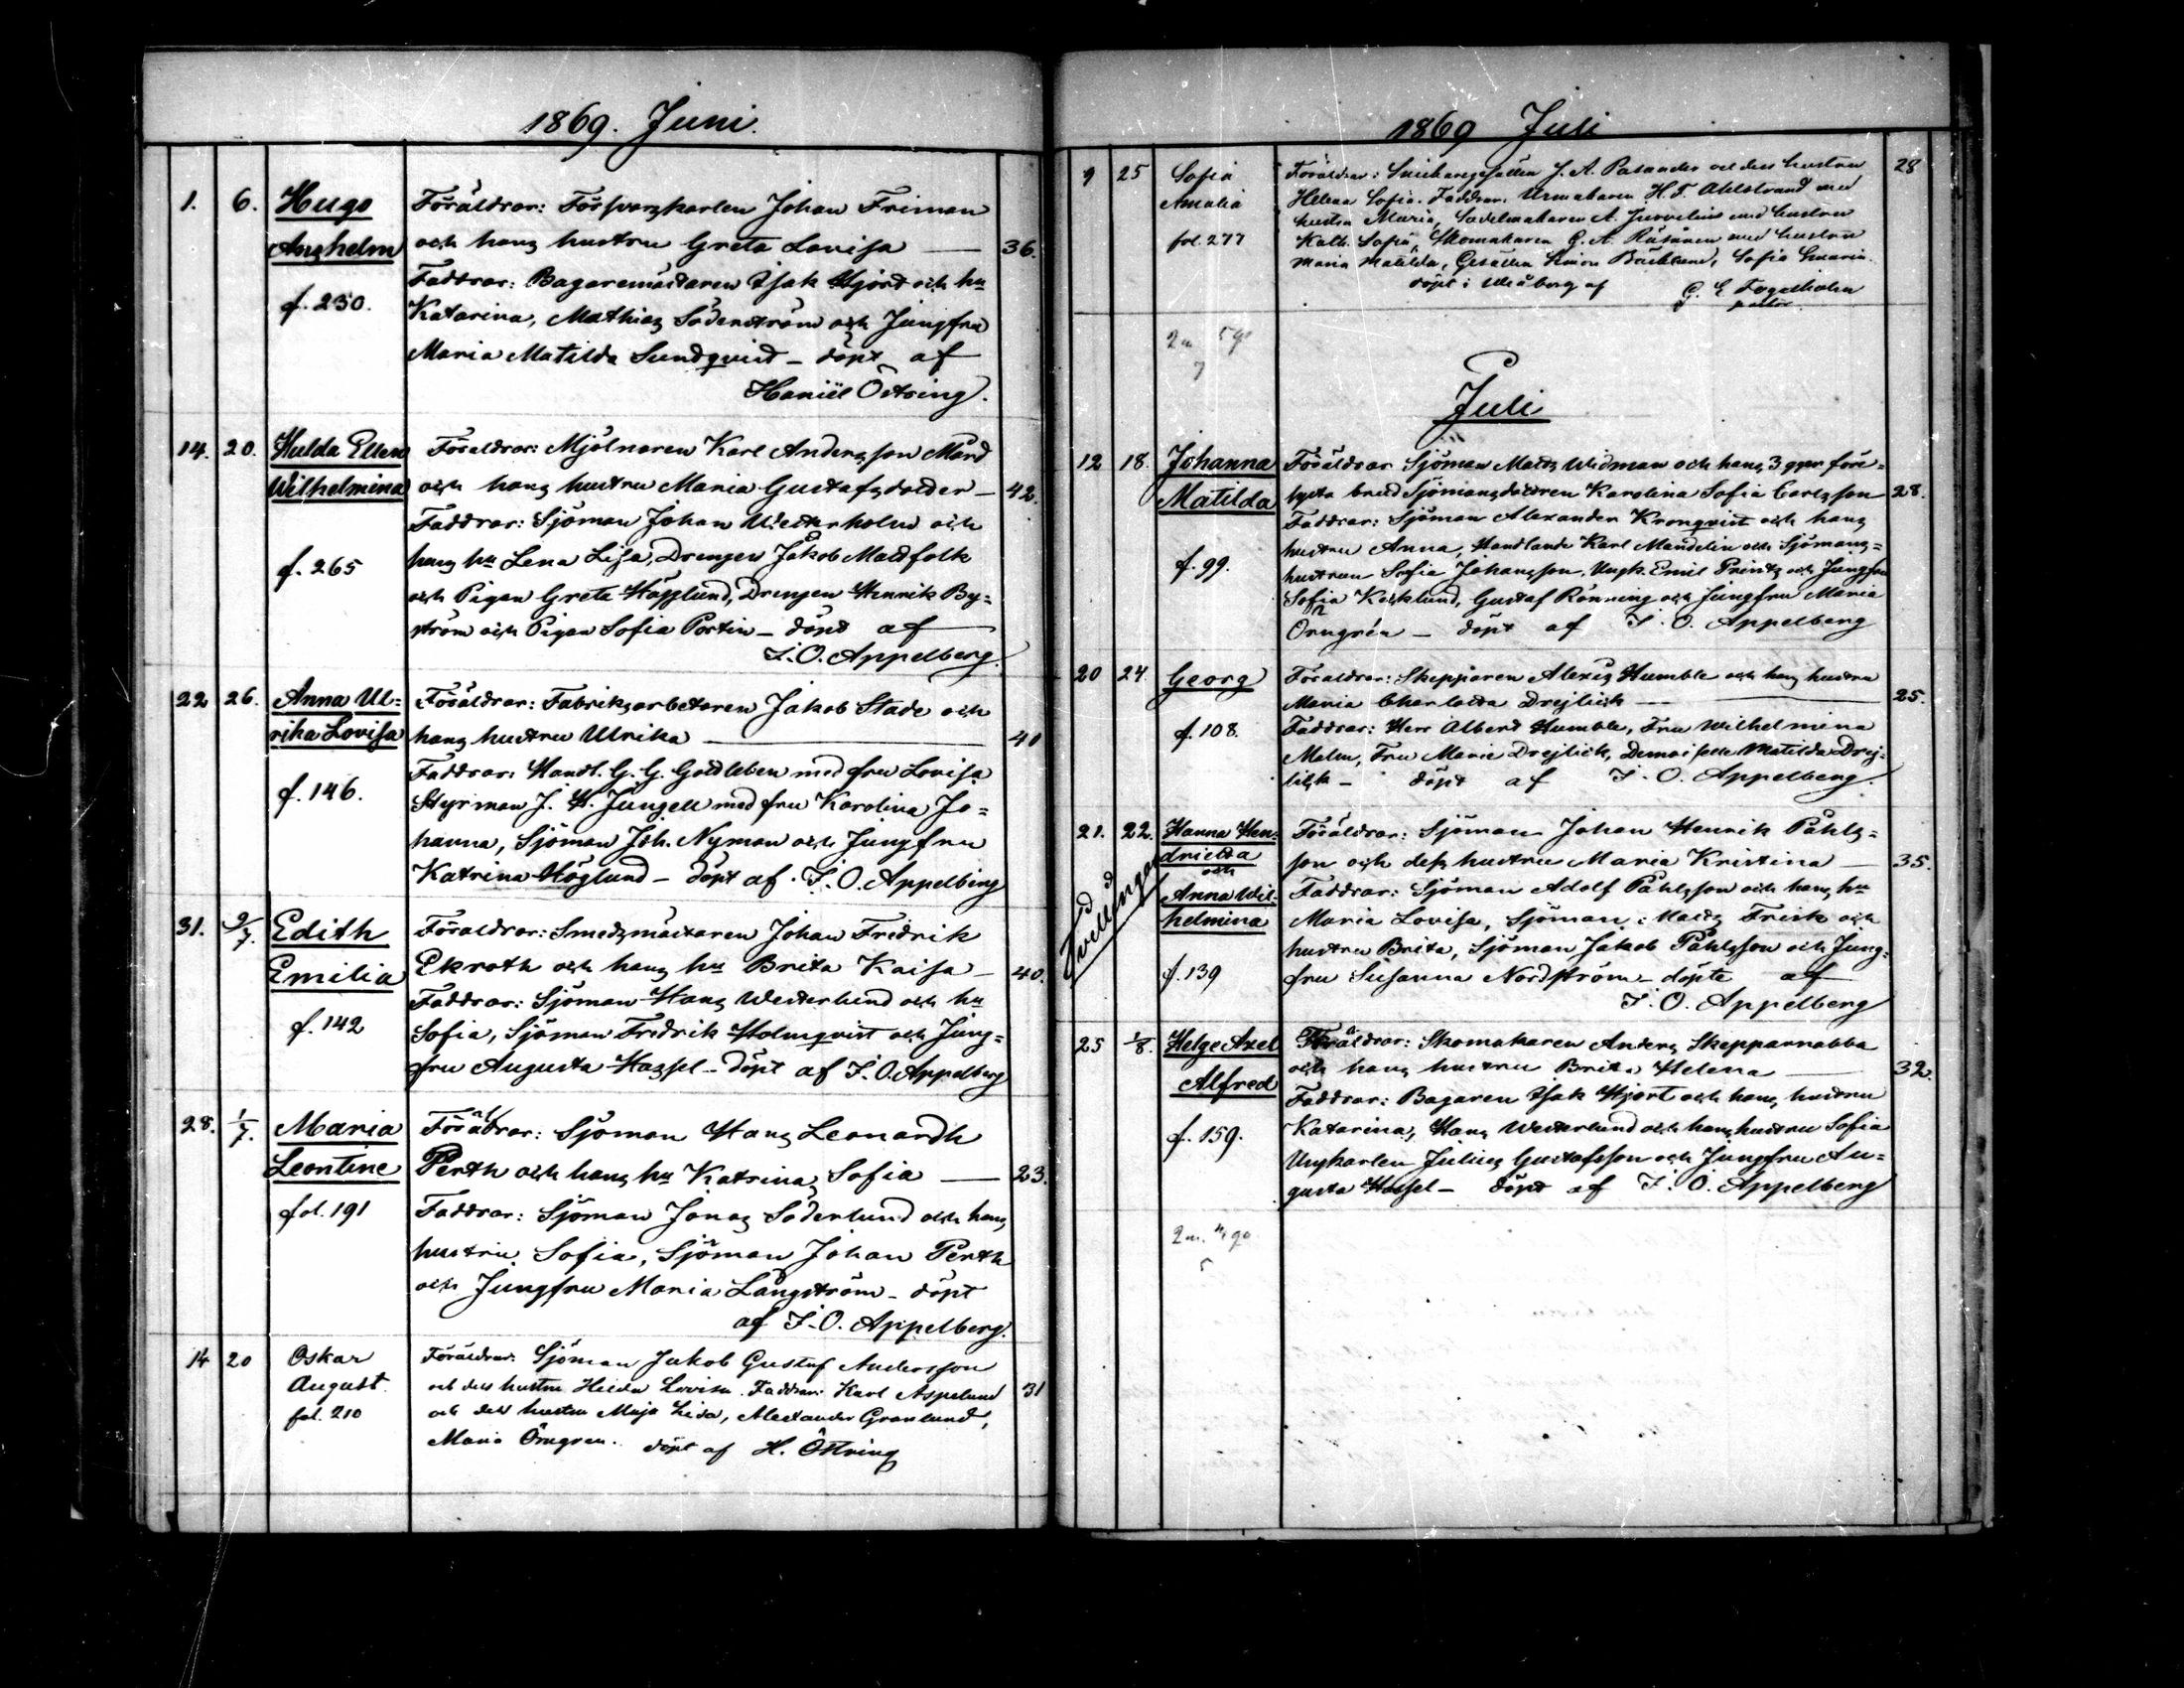 1869. Juni.
1. 6. Hugo Föräldrar: Försvarzkarlen Johan Friman
Anshelm och hans hustru Greta Lovisa — 36.
Faddrar: Bagaremästaren Isak Hjort och hu
f. 230. Katarina, Mathias Söderström och Jungfru
Maria Matilda Sundqvist – döpt af
Haniël Östring.
14. 20. Hulda Ellen Föräldrar: Mjölnaren Karl Andersson Mård
Wilhelmina och hans hustru Maria Gustafsdotter – 42.
Faddrar: Sjöman Johan Westerholm och
f. 265 hans hu Lena Lisa, Drengen Jakob Matfolk
och Pigan Greta Högglund, Drengen Henrik By=
ström och Pigan Sofia Portin – döpt af
I. O. Appelberg.
22 26. Anna Ul= Föräldrar: Fabriksarbetaren Jakob Stade och
rika Lovisa hans hustru Ulrika — 40
Faddrar: Handl. G. G. Gottleben med fru Lovisa
f. 146. Styrman J. H. Jungell med fru Karolina Jo=
hanna, Sjöman Joh. Nyman och Jungfru
Katrina Höglund – döpt af I. O. Appelberg
31. 2/7. Edith Föräldrar: Smedsmästaren Johan Fredrik
Emilia Ekroth och hans hu Brita Kaisa – 40.
Faddrar: Sjöman Hans Westerlund och hu
f. 142 Sofia, Sjöman Fredrik Holmqvist och Jung=
fru Augusta Hassel – döpt af I. O. Appelberg
28. 1/7. Maria Föräldrar: Sjöman Hans Leonardh
Leontine Perth och hans hu Katrina Sofia — 23.
fol. 191 Faddrar: Sjöman Jonas Söderlund och hans
hustru Sofia, Sjöman Johan Perth
och Jungfru Maria Långström – döpt
af I. O. Appelberg.
14 20 Oskar Föräldrar: Sjöman Jakob Gustaf Andersson
August och dess hustru Lovisa. Faddrar: Karl Aspelund 31
fol. 210 och dess hustru Maja Lisa, Alexander Granlund,
Maria Örngren. döpt af H. Östring
1869 Juli
9 25 Sofia Föräldrar: Snickaregesällen J. A. Patander och dess hustru 28
Amalia Helena Sofia. Faddrar: Urmakaren H. F. Ahlstrand med
hustru Maria, Sadelmakaren A. Juvvelius med hustru
fol. 277 Kath. Sofia, Skomakaren G. A. Räsänen med hustru
Maria Matilda, Gesällen Simon Bäcklund, Sofia
döpt i Uleåborg af G. E. Fogelholm
pastor.
2m 5qv
7
Juli
12 18. Johanna Föräldrar Sjöman Matts Widman och hans 3 ggr före=
Matilda lysta brud Sjömansdottren Karolina Sofia Carlsson 28.
Faddrar: Sjöman Alexander Kronqvist och hans
hustru Anna, Handlande Karl Mandelin och Sjömans=
f. 99. hustrun Sofia Johansson, Ungk. Emil Printz och Jungfru
Sofia Kecklund, Gustaf Rönning och Jungfru Maria
Örngrén – döpt af I. O. Appelberg
20 24. Georg Föräldrar: Skepparen Alexis Humble och hans hustru
Maria Charlotta Drejlick — 25.
f. 108. Faddrar: Herr Albert Humble, Fru Wilhelmina
Malm, Fru Marie Drejlick, Demoiselle Matilda Drej=
lick – döpt af I. O. Appelberg.
21. 22. Hanna Hen= Föräldrar: Sjöman Johan Henrik Påhls=
drietta son och dess hustru Maria Kristina — 35.
och
Anna Wil= Faddrar: Sjöman Adolf Påhlsson och hans hu
helmina Maria Lovisa, Sjöman Matts Frisk och
Tvillingar
hustru Brita, Sjöman Jakob Påhlsson och Jung=
f. 139 fru Susanna Nordström – döpte af
I. O. Appelberg
25 1/8. Helge Axel Föräldrar: Skomakaren Anders Skepparnabba
Alfred och hans hustru Brita Helena — 32.
Faddrar: Bagaren Isak Hjort och hans hustru
f. 159. Katarina, Hans Westerlund och hans hustru Sofia
Ungkarlen Julius Gustafsson och Jungfru Au=
gusta Hassel – döpt af I. O. Appelberg
2m. 4qv
5